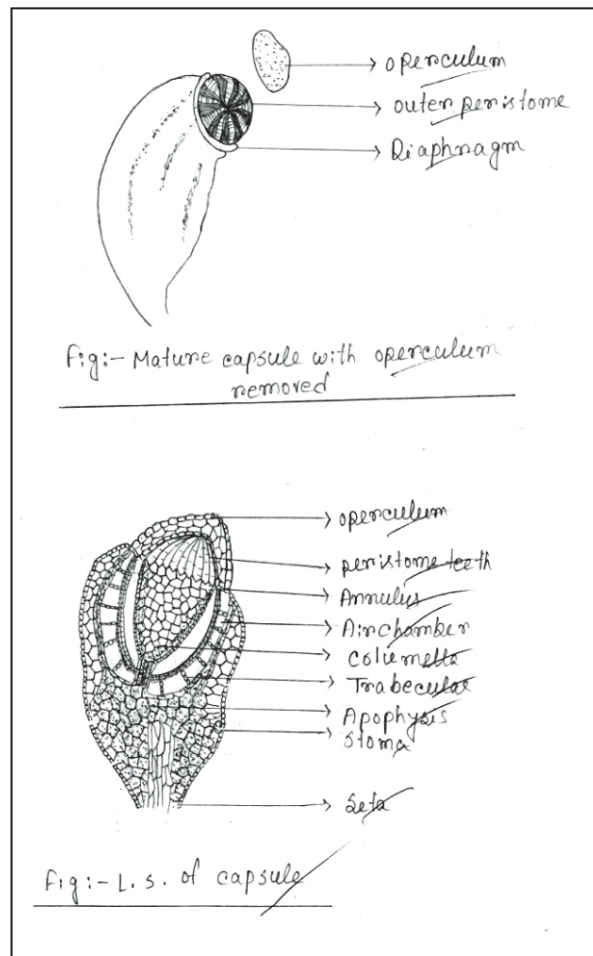 operculum
outer peristome
Diaphragm
Fig:- Mature capsule with operculum
removed
operculum
peristome teeth
Annulus
Airchamber
Columella
Trabeculae
Apophysis
Stoma
Seta
Fig:- L.s. of capsule